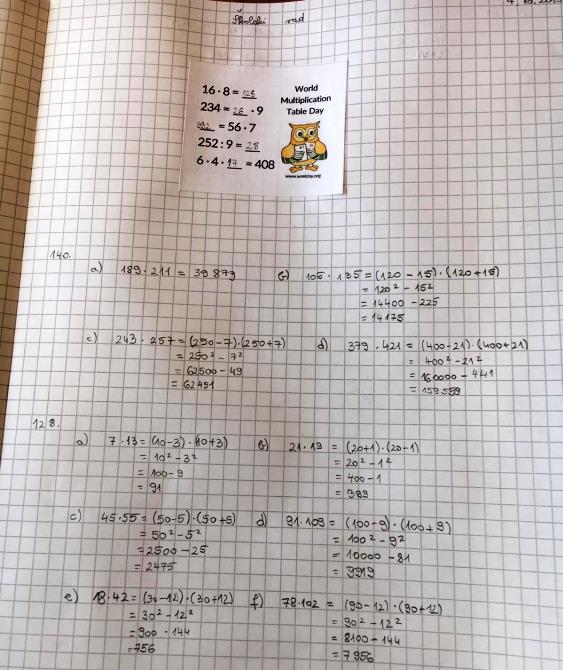 4. 10. 20
Školski rad
16 · 8 = 128
234 = 26 · 9
392 = 56 · 7
252 : 9 = 28
6 · 4 · 17 = 408
World
Multiplication
Table Day
www.wmtday.org
140.
a) 189 · 211 = 39 879
b) 105 · 135 = (120 - 15) · (120 + 15)
= 120² - 15²
= 14400 - 225
= 14175
c) 243 · 257 = (250 - 7) · (250 + 7)
= 250² - 7²
= 62500 - 49
= 62451
d) 379 · 421 = (400 - 21) · (400 + 21)
= 400² - 21²
= 160000 - 441
= 159559
128.
a) 7 · 13 = (10 - 3) · (10 + 3)
= 10² - 3²
= 100 - 9
= 91
b) 21 · 19 = (20 + 1) · (20 - 1)
= 20² - 1²
= 400 - 1
= 399
c) 45 · 55 = (50 - 5) · (50 + 5)
= 50² - 5²
= 2500 - 25
= 2475
d) 91 · 109 = (100 - 9) · (100 + 9)
= 100² - 9²
= 10000 - 81
= 9919
e) 18 · 42 = (30 - 12) · (30 + 12)
= 30² - 12²
= 900 - 144
= 756
f) 78 · 102 = (90 - 12) · (90 + 12)
= 90² - 12²
= 8100 - 144
= 7956